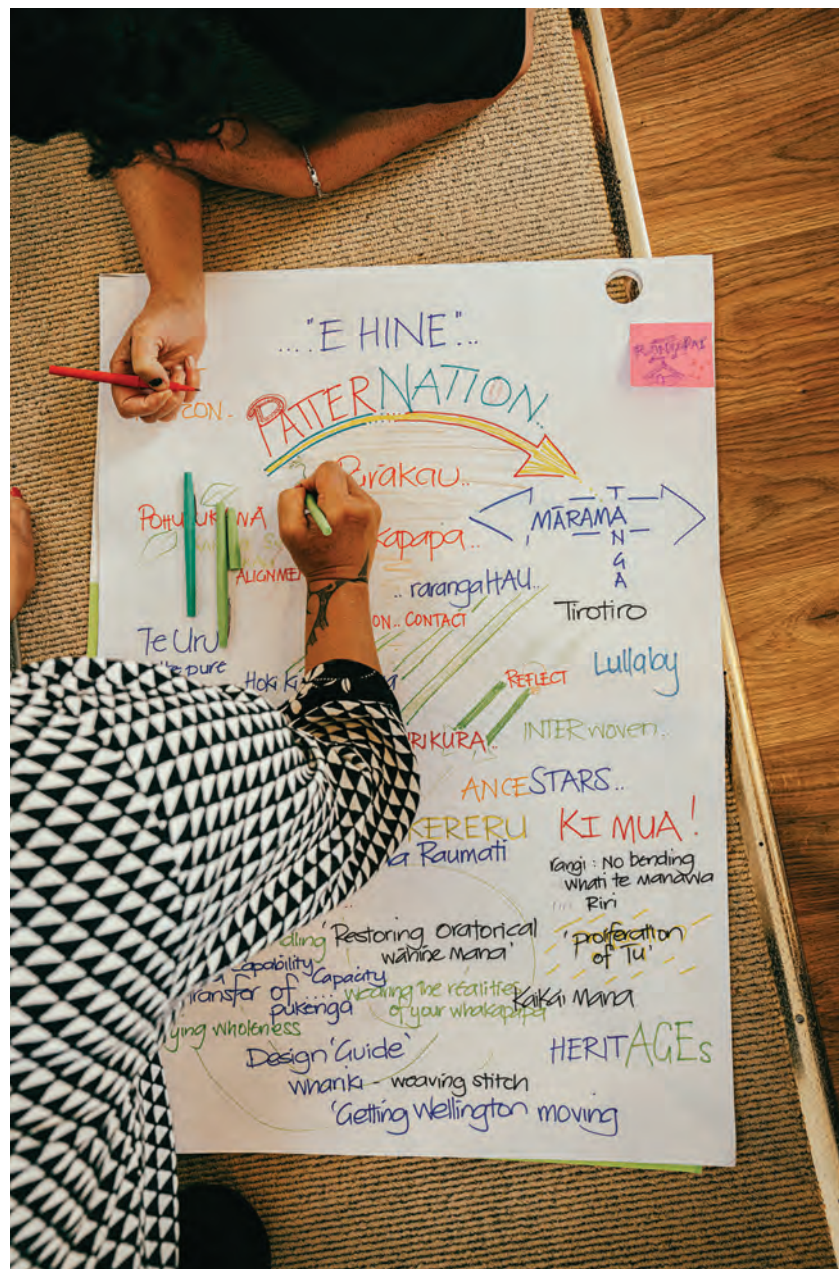 ..."E HINE"..
CON..
PATTERNATION..
Pūrākau..
MĀRAMATANGA
kapapa..
.. rarangaHAU..
ALIGNME
Tirotiro
ON.. CONTACT
Te Uru
pure
Lullaby
Hoki Ki
REFLECT
RIKURA..
INTERwoven..
ANCESTARS..
KERERU
KI MUA!
a Raumati
rangi: No bending
whati te manawa
Riri
dling
'Restoring oratorical
wāhine Mana'
'proliferation
of Tu'
Capability
Capacity
Transfer of ....
pukenga
wearing the realities
of your whakapapa
Kaikai Mana
ying wholeness
Design 'Guide'
HERITAGEs
whariki - weaving stitch
'Getting Wellington moving